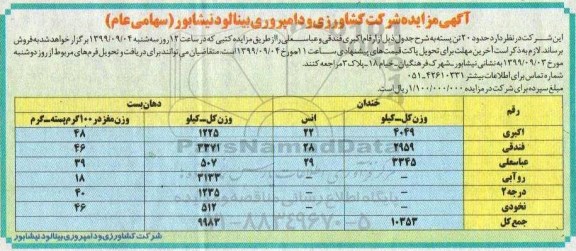 آگهی مزایده شرکت کشاورزی و دامپروری بینالود نیشابور (سهامی عام)
این شرکت در نظر دارد حدود ۲۰ تن پسته به شرح جدول ذیل از ارقام اکبری فندقی و عباسعلی را از طریق مزایده کتبی که در ساعت ۱۳ روز سه شنبه ۱۳۹۹/۰۹/۰۴ برگزار خواهد شد به فروش
برساند. لازم به ذکر است آخرین مهلت برای تحویل پاکت قیمت های پیشنهادی ساعت ۱۱ مورخ ۱۳۹۹/۰۹/۰۴ است متقاضیان می توانند برای دریافت و تحویل فرم های مربوط از روز دوشنبه
مورخ ۱۳۹۹/۰۹/۰۳ به نشانی نیشابور ـ شهرک فرهنگیان ـ خیام ۱۸ ـ پلاک ۳ مراجعه کنند.
شماره تماس برای اطلاعات بیشتر ۴۲۶۱۰۳۳۱-۰۵۱
مبلغ سپرده برای شرکت در مزایده ۱/۱۰۰/۰۰۰/۰۰۰ ریال است.
رقم خندان دهان بست
وزن کل ـ کیلو انس وزن کل ـ کیلو وزن مغز در ۱۰۰ گرم پسته ـ گرم
اکبری ۴۰۴۹ ۲۲ ۱۲۲۵ ۴۸
فندقی ۲۹۵۹ ۲۸ ۳۳۷۱ ۴۶
عباسعلی ۳۳۴۵ ۲۹ ۵۰۷ ۳۹
روآبی - - ۳۱۳۳ ۱۸
درجه ۲ - - ۱۲۳۵ ۴۰
نخودی - - ۵۱۲ ۴۶
جمع کل ۱۰۳۵۳ ۹۹۸۳
شرکت کشاورزی و دامپروری بینالود نیشابور
ParsNamadData
پایگاه اطلاع رسانی مناقصه و مزایده
۰۲۱-۸۸۳۴۹۶۷۰-۵